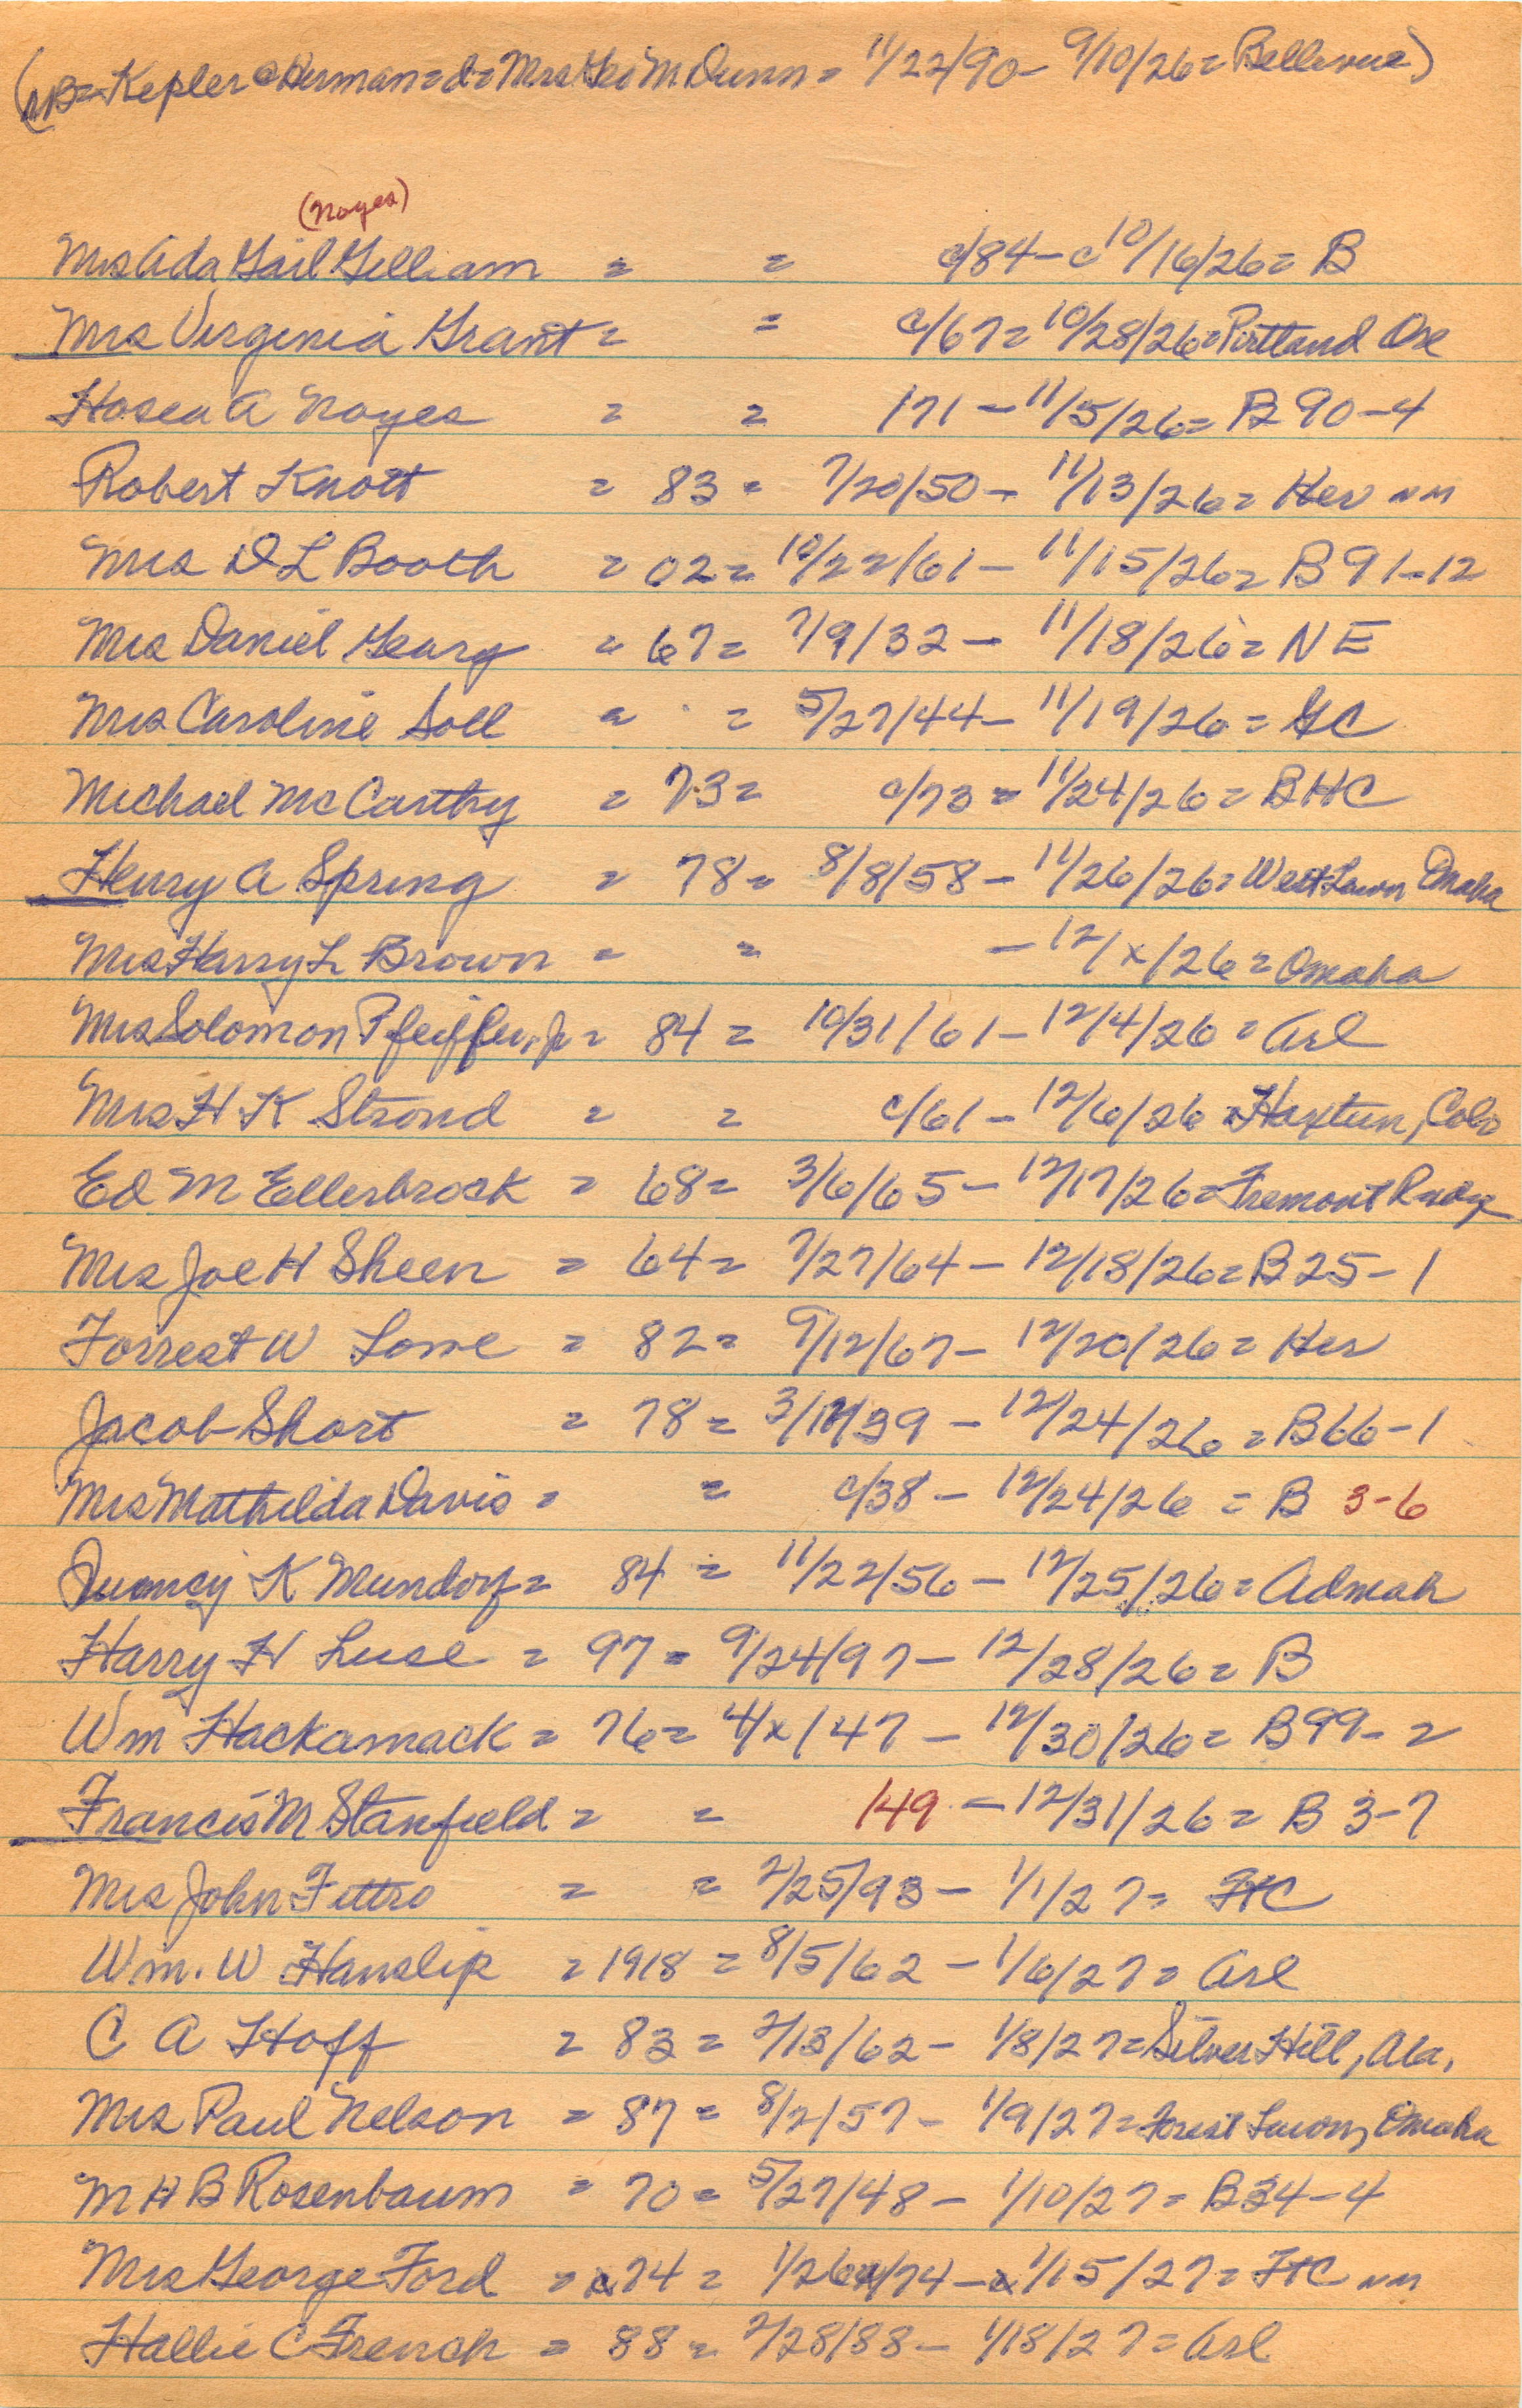 (NB=Kepler @ Herman=d=Mrs Geo M Dunn= 11/22/90- 9/10/26=Bellevue)
(Noyes)
Mrs Ada Gail Gilliam = = c/84-c10/16/26= B
Mrs Virginia Grant= = c/67=10/28/26=Portland Ore
Hosea A Noyes = = 171-11/5/26= B 90-4
Robert Knott = 83= 7/20/50- 11/13/26= Her nm
Mrs D L Booth = 02= 10/22/61- 11/15/26= B 91-12
Mrs Daniel Geary = 67= 7/9/32- 11/18/26= NE
Mrs Caroline Soll = = 5/27/44- 11/19/26= GC
Michael McCarthy = 73= c/73= 11/24/26= BHC
Henry A Spring = 78= 8/8/58- 11/26/26=West Lawn Omaha
Mrs Harry L Brown = = -12/x/26=Omaha
Mrs Solomon Pfeiffer, Jr= 84= 10/31/61-12/4/26=Arl
Mrs H K Strond = = c/61-12/6/26=Haxtun, Colo
Ed M Ellerbrock = 68= 3/6/65-12/17/26=Fremont Rudge
Mrs Joe H Sheen = 64= 7/27/64-12/18/26=B 25-1
Forrest W Lowe = 82= 9/12/67- 12/20/26= Her
Jacob Short = 78= 3/ /39 - 12/24/26=B66-1
Mrs Mathilda Davis= = c/38- 12/24/26 = B 3-6
Quincy K Mundorf= 84= 11/22/56- 12/25/26=Admah
Harry H Luse = 97= 9/24/97- 12/28/26= B
Wm Hackamack= 76= 4/x/47- 12/30/26= B99-2
Francis M Stanfield= = 149 -12/31/26= B 3-7
Mrs John Fittro = = 2/25/93- 1/1/27= FtC
Wm. W Hanslip =1918= 8/5/62-1/6/27= Arl
C A Hoff = 83= 2/13/62- 1/8/27=Silver Hill, Ala,
Mrs Paul Nelson = 87= 8/2/57- 1/9/27=Forest Lawn, Omaha
M H B Rosenbaum = 70= 5/27/48- 1/10/27= B34-4
Mrs George Ford = 74= 1/26/74- 1/15/27= FtC nm
Hallie C French = 88= 2/28/88- 1/18/27=Arl